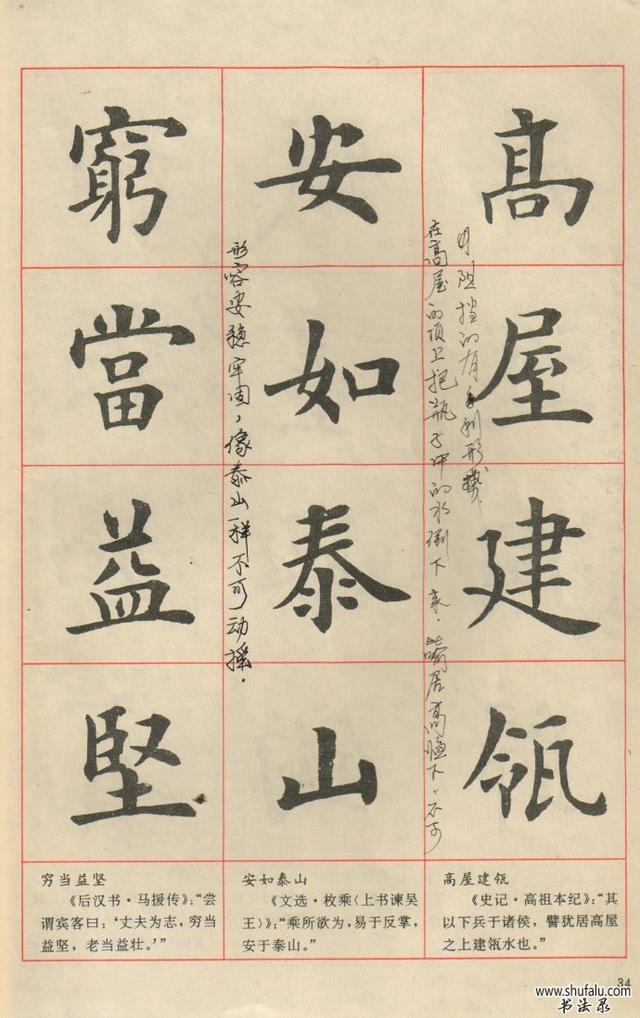 高屋建瓴
在高屋的顶上把瓶子中的水倒下来.喻居高临下,不可
阻挡的有利形势.
安如泰山
形容安稳牢固,像泰山一样不可动摇.
窮當益堅
高屋建瓴
《史记·高祖本纪》:“其
以下兵于诸侯,譬犹居高屋
之上建瓴水也。”
安如泰山
《文选·枚乘〈上书谏吴
王〉》:“乘所欲为,易于反掌,
安于泰山。”
穷当益坚
《后汉书·马援传》:“尝
谓宾客曰:‘丈夫为志,穷当
益坚,老当益壮。’”
34
www.shufalu.com
书法录